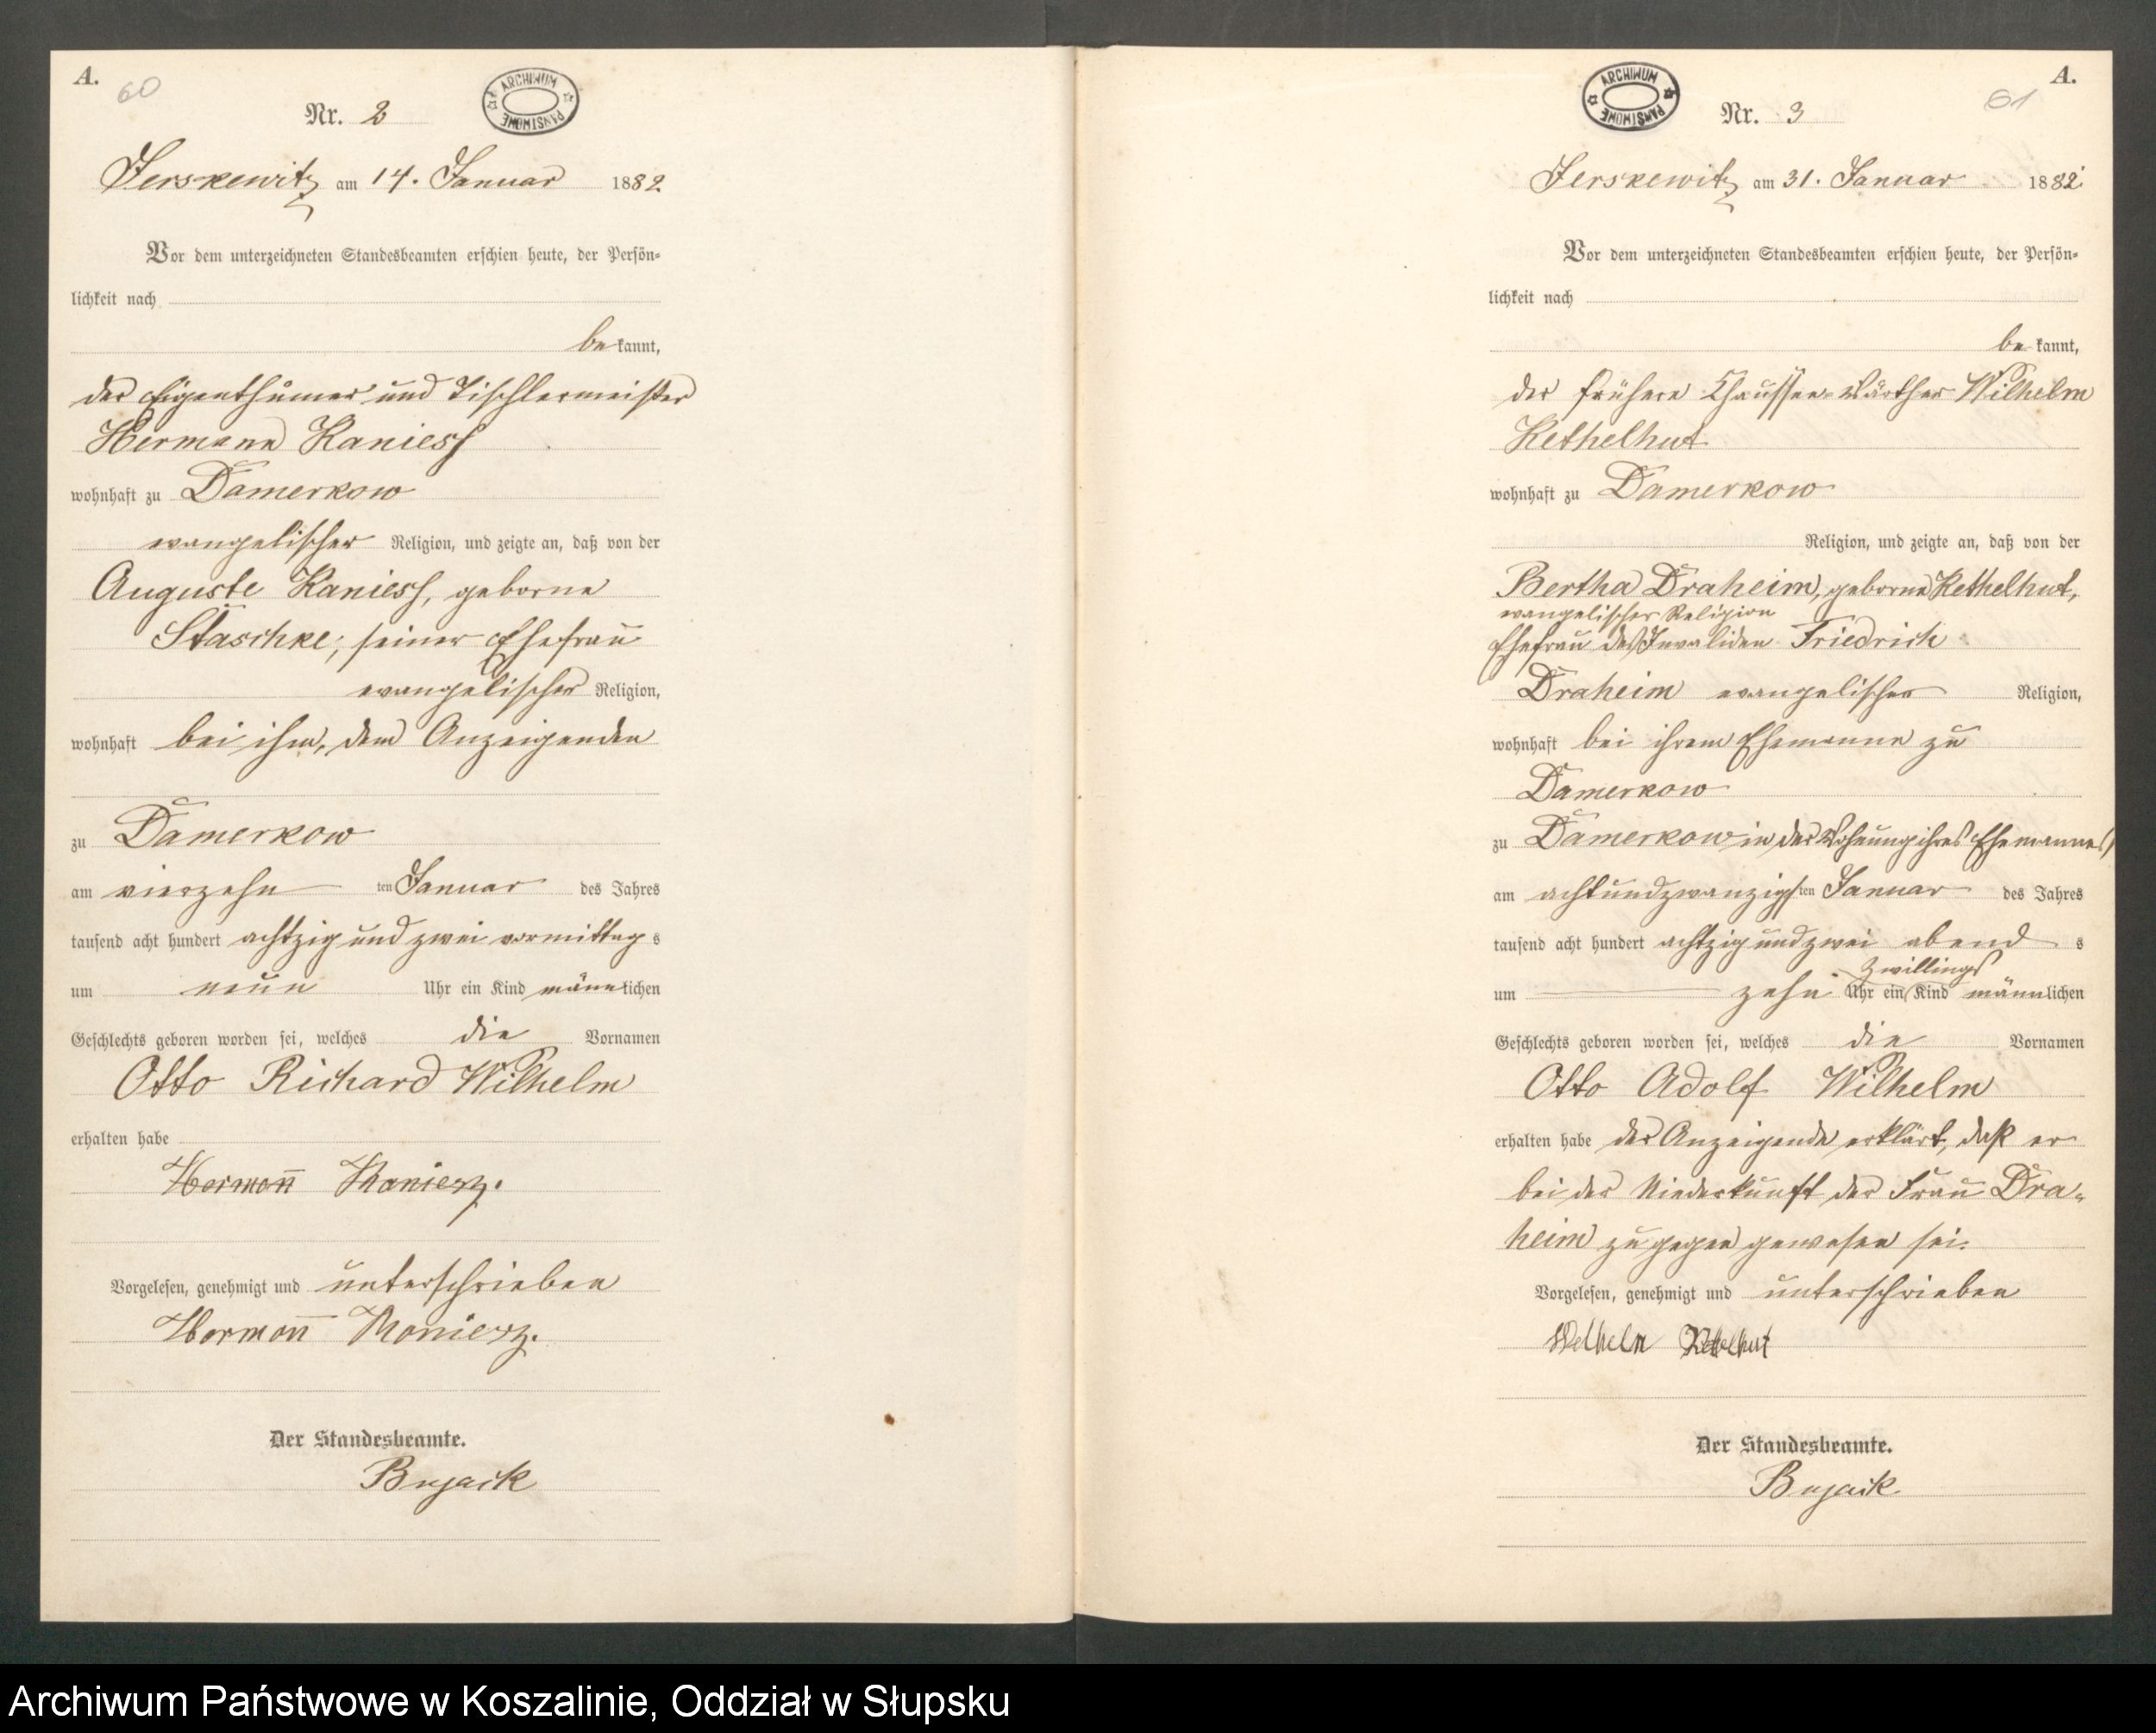 A.
60
Nr. 2
ARCHIWUM PAŃSTWOWE
Jerskewitz am 14. Januar 1882
Vor dem unterzeichneten Standesbeamten erschien heute, der Persön-
lichkeit nach
be kannt,
der Eigenthümer und Tischlermeister
Hermann Kaniess
wohnhaft zu Damerkow
evangelischer Religion, und zeigte an, daß von der
Auguste Kaniess, geborne
Staschke, seiner Ehefrau
evangelischer Religion,
wohnhaft bei ihm, dem Anzeigenden
zu Damerkow
am vierzehn ten Januar des Jahres
tausend acht hundert achtzig und zwei vormittag s
um neun Uhr ein Kind männlichen
Geschlechts geboren worden sei, welches die Vornamen
Otto Richard Wilhelm
erhalten habe
Hermann Kaniesz.
Vorgelesen, genehmigt und unterschrieben
Hermann Kaniesz.
Der Standesbeamte.
Bujack
A.
61
ARCHIWUM PAŃSTWOWE
Nr. 3
Jerskewitz am 31. Januar 1882
Vor dem unterzeichneten Standesbeamten erschien heute, der Persön-
lichkeit nach
be kannt,
der frühere Chaussee-Wärther Wilhelm
Kethelhut
wohnhaft zu Damerkow
Religion, und zeigte an, daß von der
Bertha Draheim, geborne Kethelhut,
evangelischer Religion
Ehefrau des Invaliden Friedrich
Draheim evangelischer Religion,
wohnhaft bei ihrem Ehemanne zu
Damerkow
zu Damerkow in der Wohnung ihres Ehemannes
am achtundzwanzigs ten Januar des Jahres
tausend acht hundert achtzig und zwei abend s
Zwillings
um zehn Uhr ein Kind männlichen
Geschlechts geboren worden sei, welches die Vornamen
Otto Adolf Wilhelm
erhalten habe der Anzeigende erklärt, daß er
bei der Niederkunft der Frau Dra-
heim zugegen gewesen sei.
Vorgelesen, genehmigt und unterschrieben
Welheln Kethelhut
Der Standesbeamte.
Bujack
Archiwum Państwowe w Koszalinie, Oddział w Słupsku